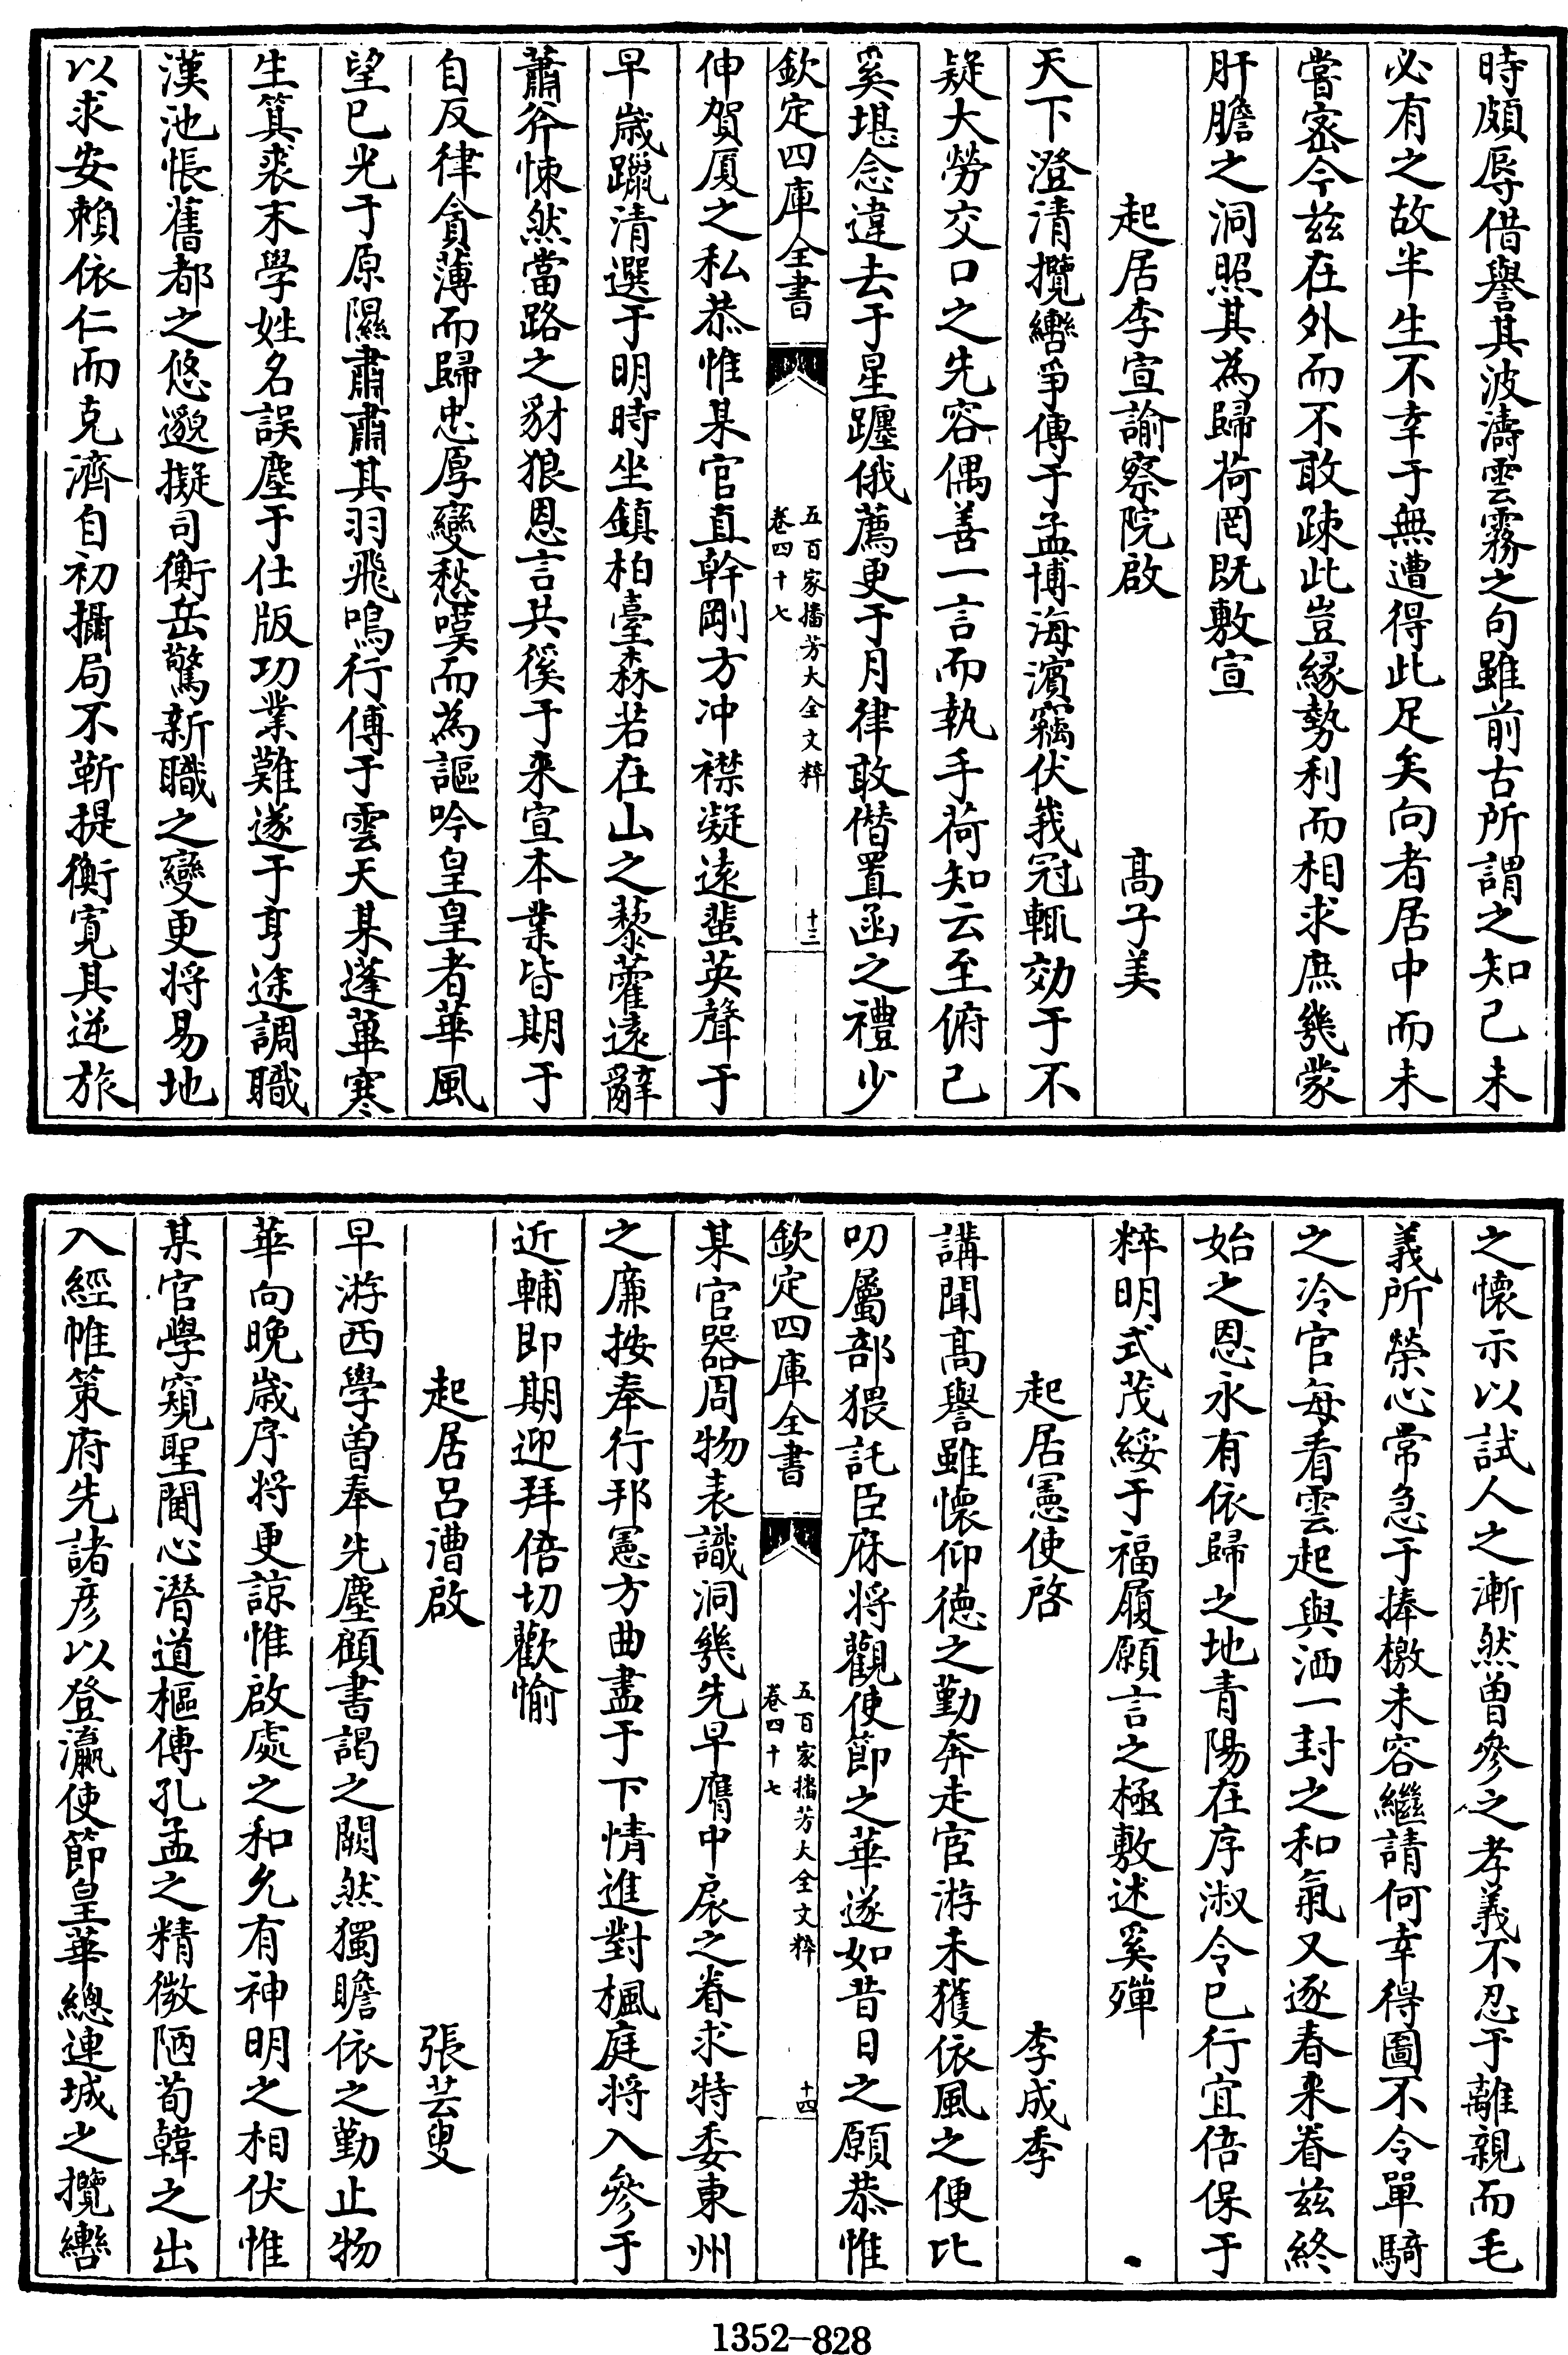 時頗辱借譽其波濤雲霧之句雖前古所謂之知己未
必有之故半生不幸于無遭得此足矣向者居中而未
嘗密今兹在外而不敢疎此豈縁勢利而相求庶幾蒙
肝膽之洞照其為歸荷罔既敷宣
起居李宣諭察院啟　高子美
天下澄清攬轡爭傳于孟博海濱竊伏峩冠輒効于不
疑大勞交口之先容偶善一言而執手荷知云至俯己
奚堪念違去于星躔俄薦更于月律敢偕置函之禮少
欽定四庫全書　五百家播芳大全文粹　卷四十七　十三
伸賀厦之私恭惟某官直幹剛方冲襟凝遠蜚英聲于
早歲躐清選于明時坐鎮柏臺森若在山之藜藿遠辭
蕭斧悚然當路之豺狼恩言共徯于来宣本業皆期于
自反律貪薄而歸忠厚變愁嘆而為謳吟皇皇者華風
望已光于原隰肅肅其羽飛鳴行傅于雲天某蓬蓽寒
生箕裘末學姓名誤塵于仕版功業難遂于亨途調職
漢池悵舊都之悠邈擬司衡岳驚新職之變更将易地
以求安賴依仁而克濟自初攝局不蘄提衡寛其逆旅
之懐示以試人之漸然曽參之孝義不忍于離親而毛
義所榮心常急于捧檄未容繼請何幸得圖不令單騎
之冷官每看雲起與洒一封之和氣又逐春来眷兹終
始之恩永有依歸之地青陽在序淑令已行宜倍保于
粹明式茂綏于福履願言之極敷述奚殫
起居憲使啓　李成季
講聞高譽雖懐仰德之勤奔走宦游未獲依風之便比
叨屬部猥託臣庥将觀使節之華遂如昔日之願恭惟
欽定四庫全書　五百家播芳大全文粹　卷四十七　十四
某官器周物表識洞幾先早膺中扆之眷求特委東州
之亷按奉行邦憲方曲盡于下情進對楓庭将入參于
近輔即期迎拜倍切歡愉
起居吕漕啟　張芸叟
早游西學曽奉先塵顧書謁之闕然獨瞻依之勤止物
華向晚歲序将更諒惟啟處之和允有神明之相伏惟
某官學窺聖閫心潜道樞傳孔孟之精微陋荀韓之出
入經帷策府先諸彦以登瀛使節皇華總連城之攬轡
1352—828